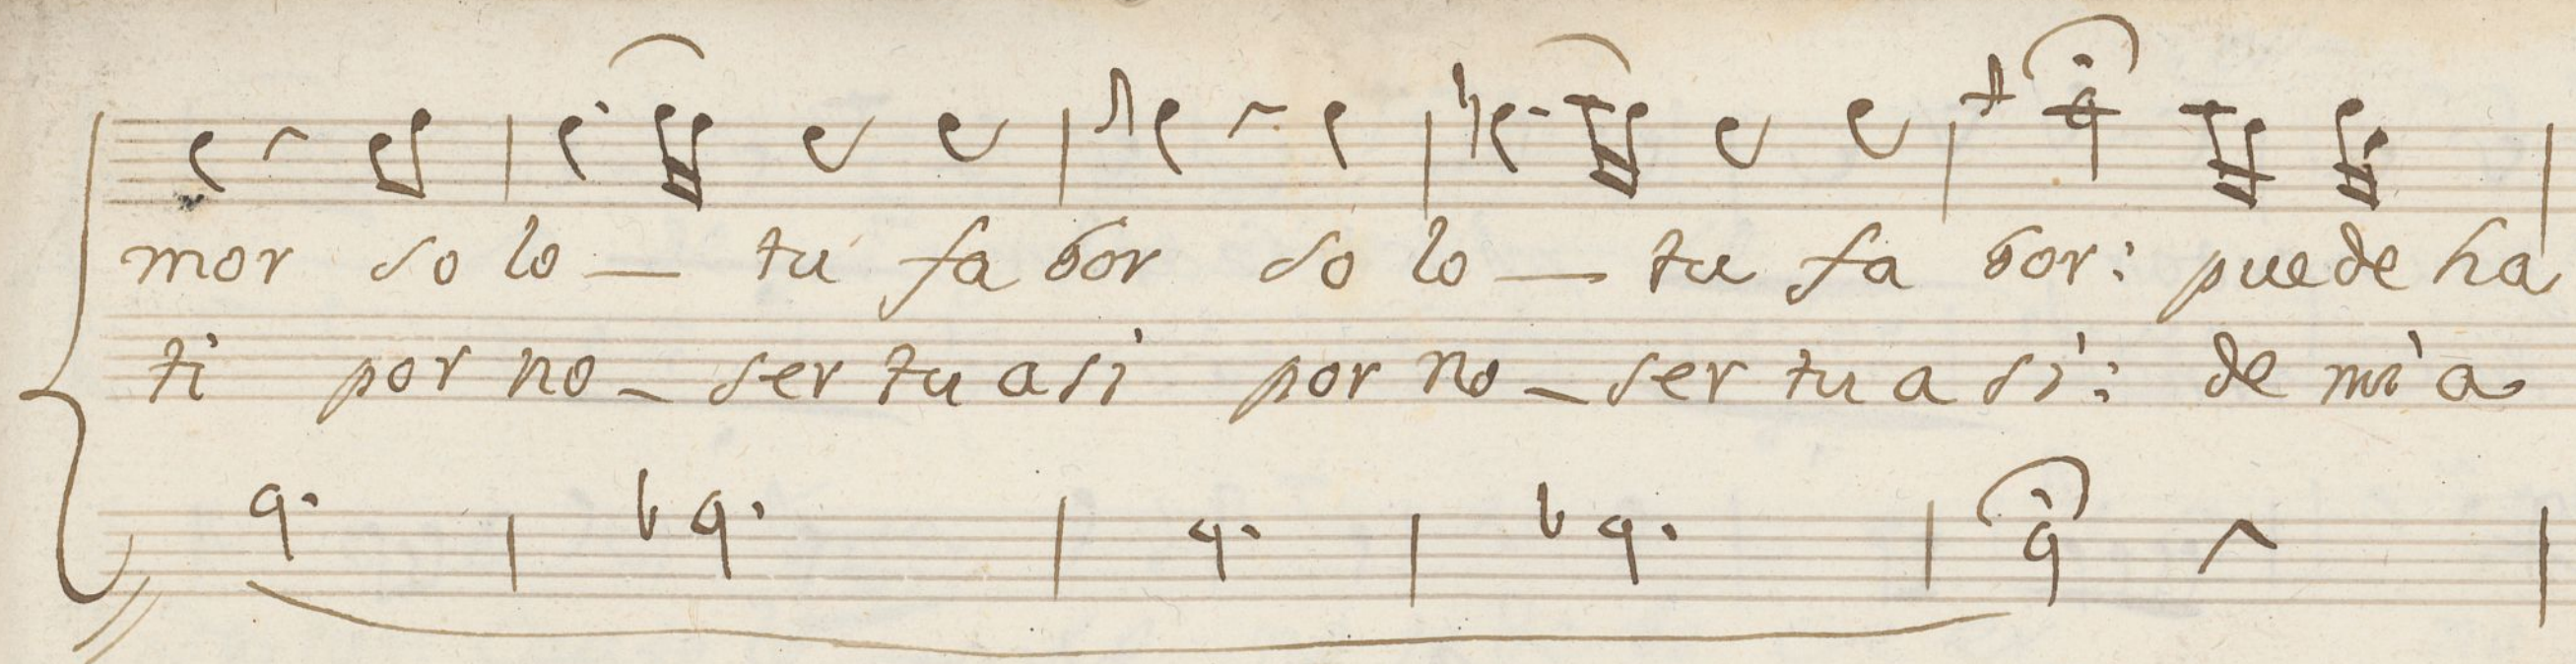 mor so lo — tu fa bor so lo — tu fa bor: puede ha
ti por no - ser tu a si por no - ser tu a sì: de mì a